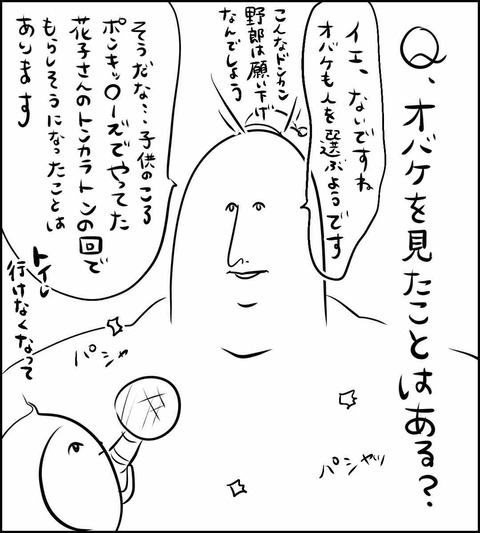 Q、オバケを見たことはある?
イエ、ないですね
オバケも人を選ぶようです
こんなドンカン
野郎は願い下げ
なんでしょう
そうだな…子供のころ
ポンキッ〇ーズでやってた
花子さんのトンカラトンの回で
もらしそうになったことは
あります
トイレ
行けなくなって
パシャ
パシャッ